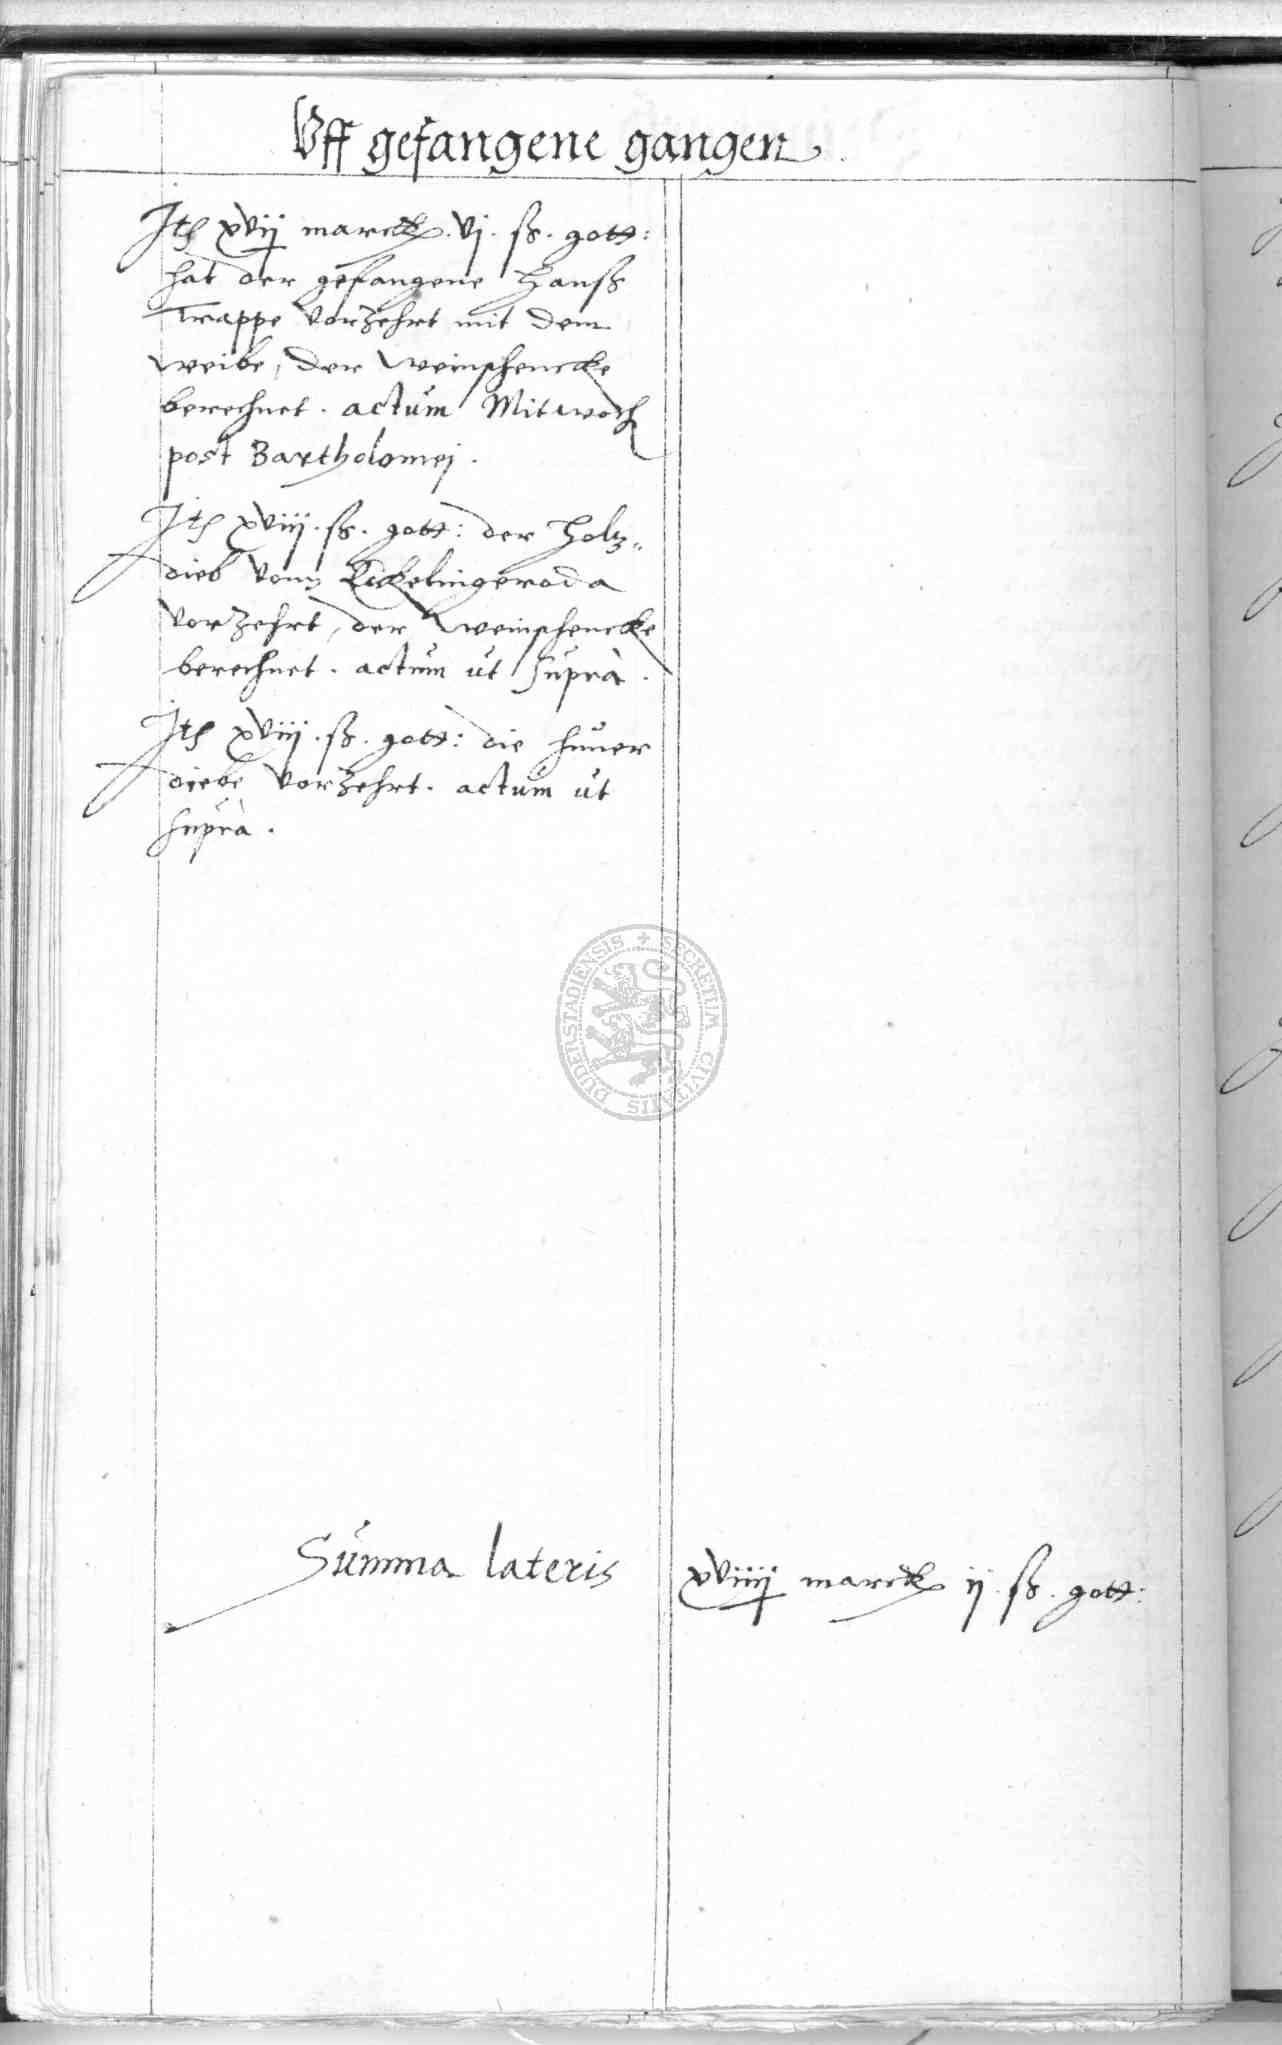 Uff gefangene gangen.
Ite xvij marck. vj. ß. gott:
hat der gefangene Hanß
Trappe vorzehrt mit dem
weibe, der weinschencke
berechnet. actum Mitwoch
post Bartholomej.
Ite xviij. ß. gott: der Holtz„
dieb vonn
vorzehrt, der weinschencke
berechnet. actum ut supra.
Ite xviij. ß. gott: die huner
diebe vorzehrt. actum ut
supra.
SECRETUM CIVITATIS DUDERSTADIENSIS
Summa lateris xviiij marck ij. ß. gott: